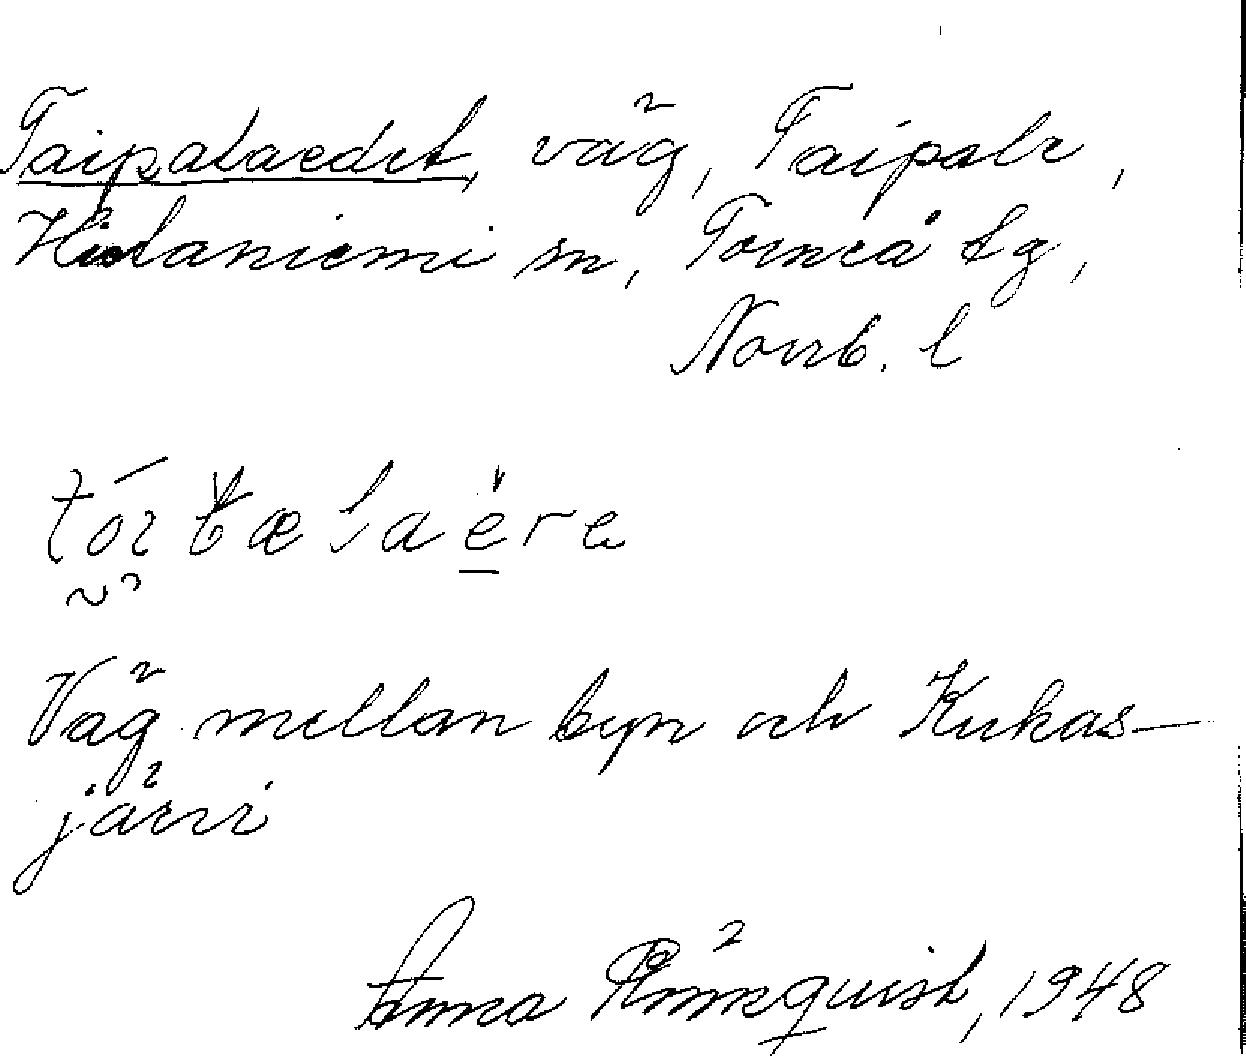 Taipalaedet, väg, Taipale,
Hietaniemi sn, Torneå tg,
Norrb. l
Väg mellan byn och Kukas-
järvi
Anna Rönnquist, 1948